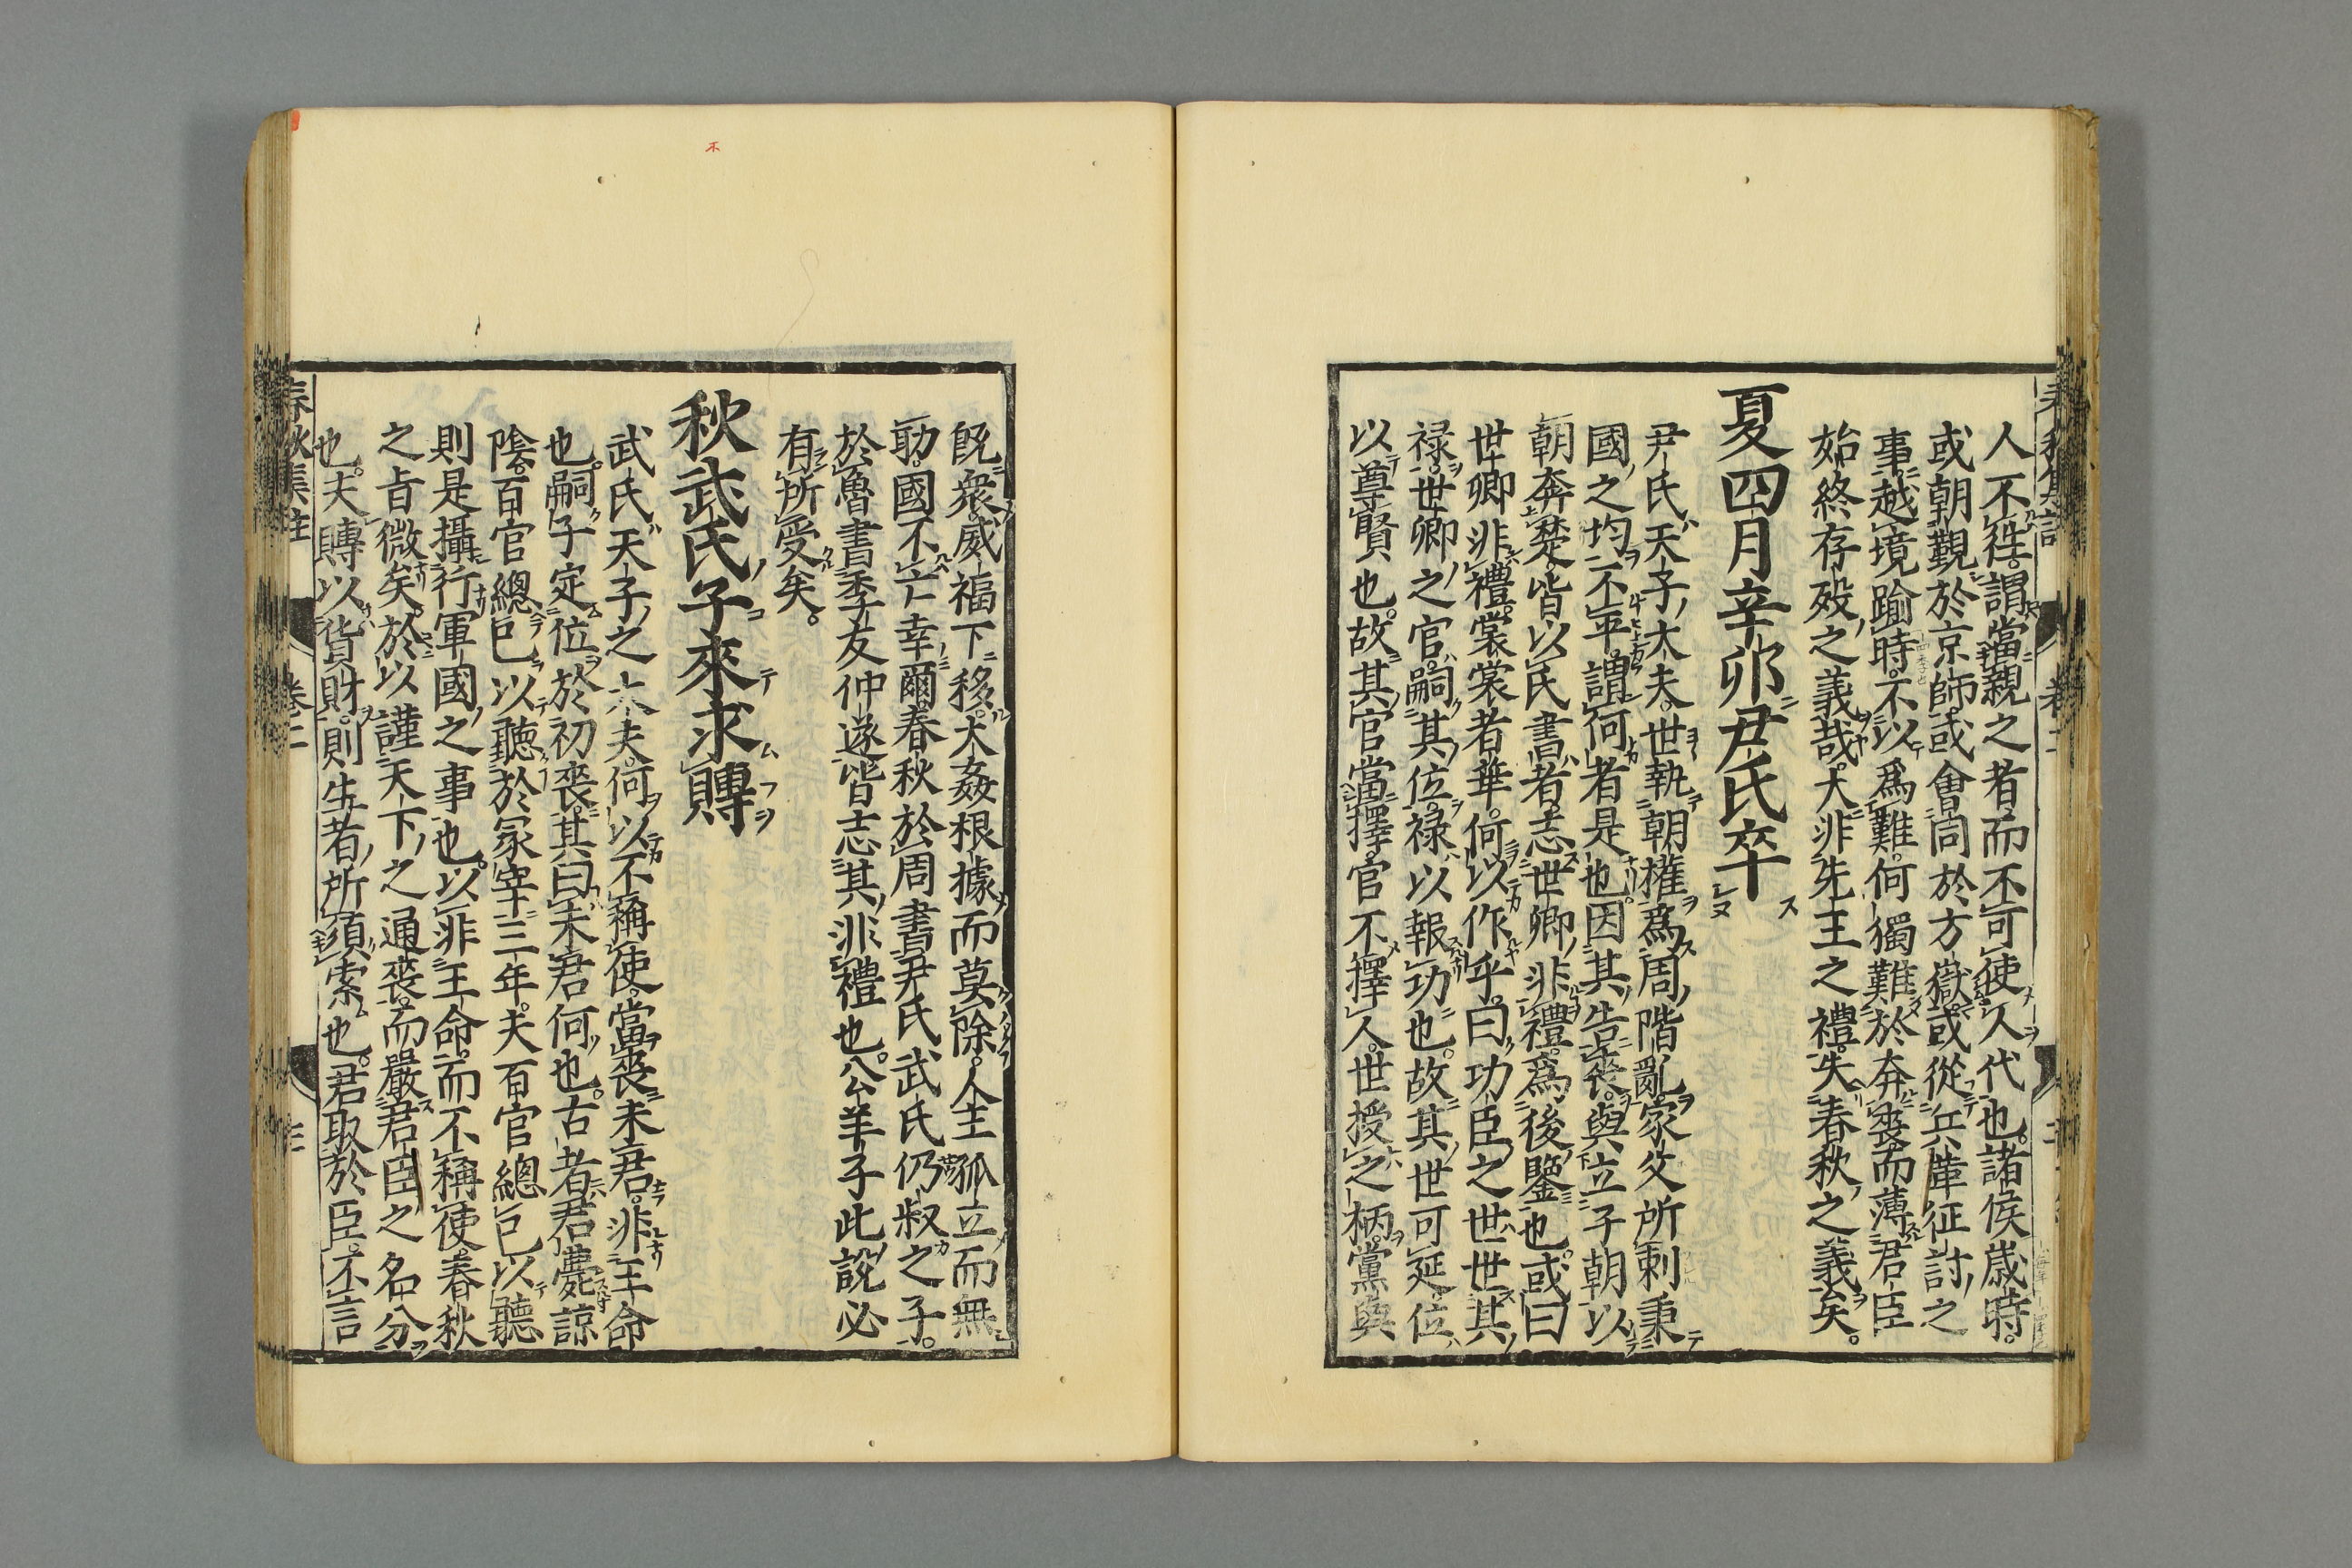 人不往。謂當親之者而不可使人代也。諸侯歳時。
或朝覲於京師。或會同於方嶽。或從兵革征討之
事。越境踰時。不以爲難。何獨難於奔喪而薄君臣
始終存歿之義哉。大非先王之禮。失春秋之義矣。
夏四月辛卯尹氏卒
尹氏天子大夫。世執朝權。爲周階亂。家父所刺秉
國之均。不平謂何者是也。因其告喪。與立子朝以
朝奔楚。皆以氏書者。志世卿非禮。爲後鑒也。或曰
世卿非禮。裳裳者華。何以作乎。曰功臣之世。世其
禄。世卿之官。嗣其位。禄以報功也。故其世可延。位
以尊賢也。故其官當擇。官不擇人。世授之柄。黨與
既衆。威福下移。大姦根據而莫除。人主孤立而無
助。國不亡幸爾。春秋於周書尹氏武氏仍叔之子。
於魯書季友仲遂。皆志其非禮也。公羊子此說必
有所受矣。
秋武氏子來求賻
武氏天子之大夫。何以不稱使。當喪未君。非王命
也。嗣子定位於初喪。其曰未君何也。古者君薨諒
陰。百官總己以聽於冢宰三年。夫百官總己以聽
則是攝行軍國之事也。以非王命。而不稱使。春秋
之旨微矣。於以謹天下之通喪。而嚴君臣之名分
也。夫賻以貨財。則生者所須索也。君取於臣。不言
春秋集註
卷二